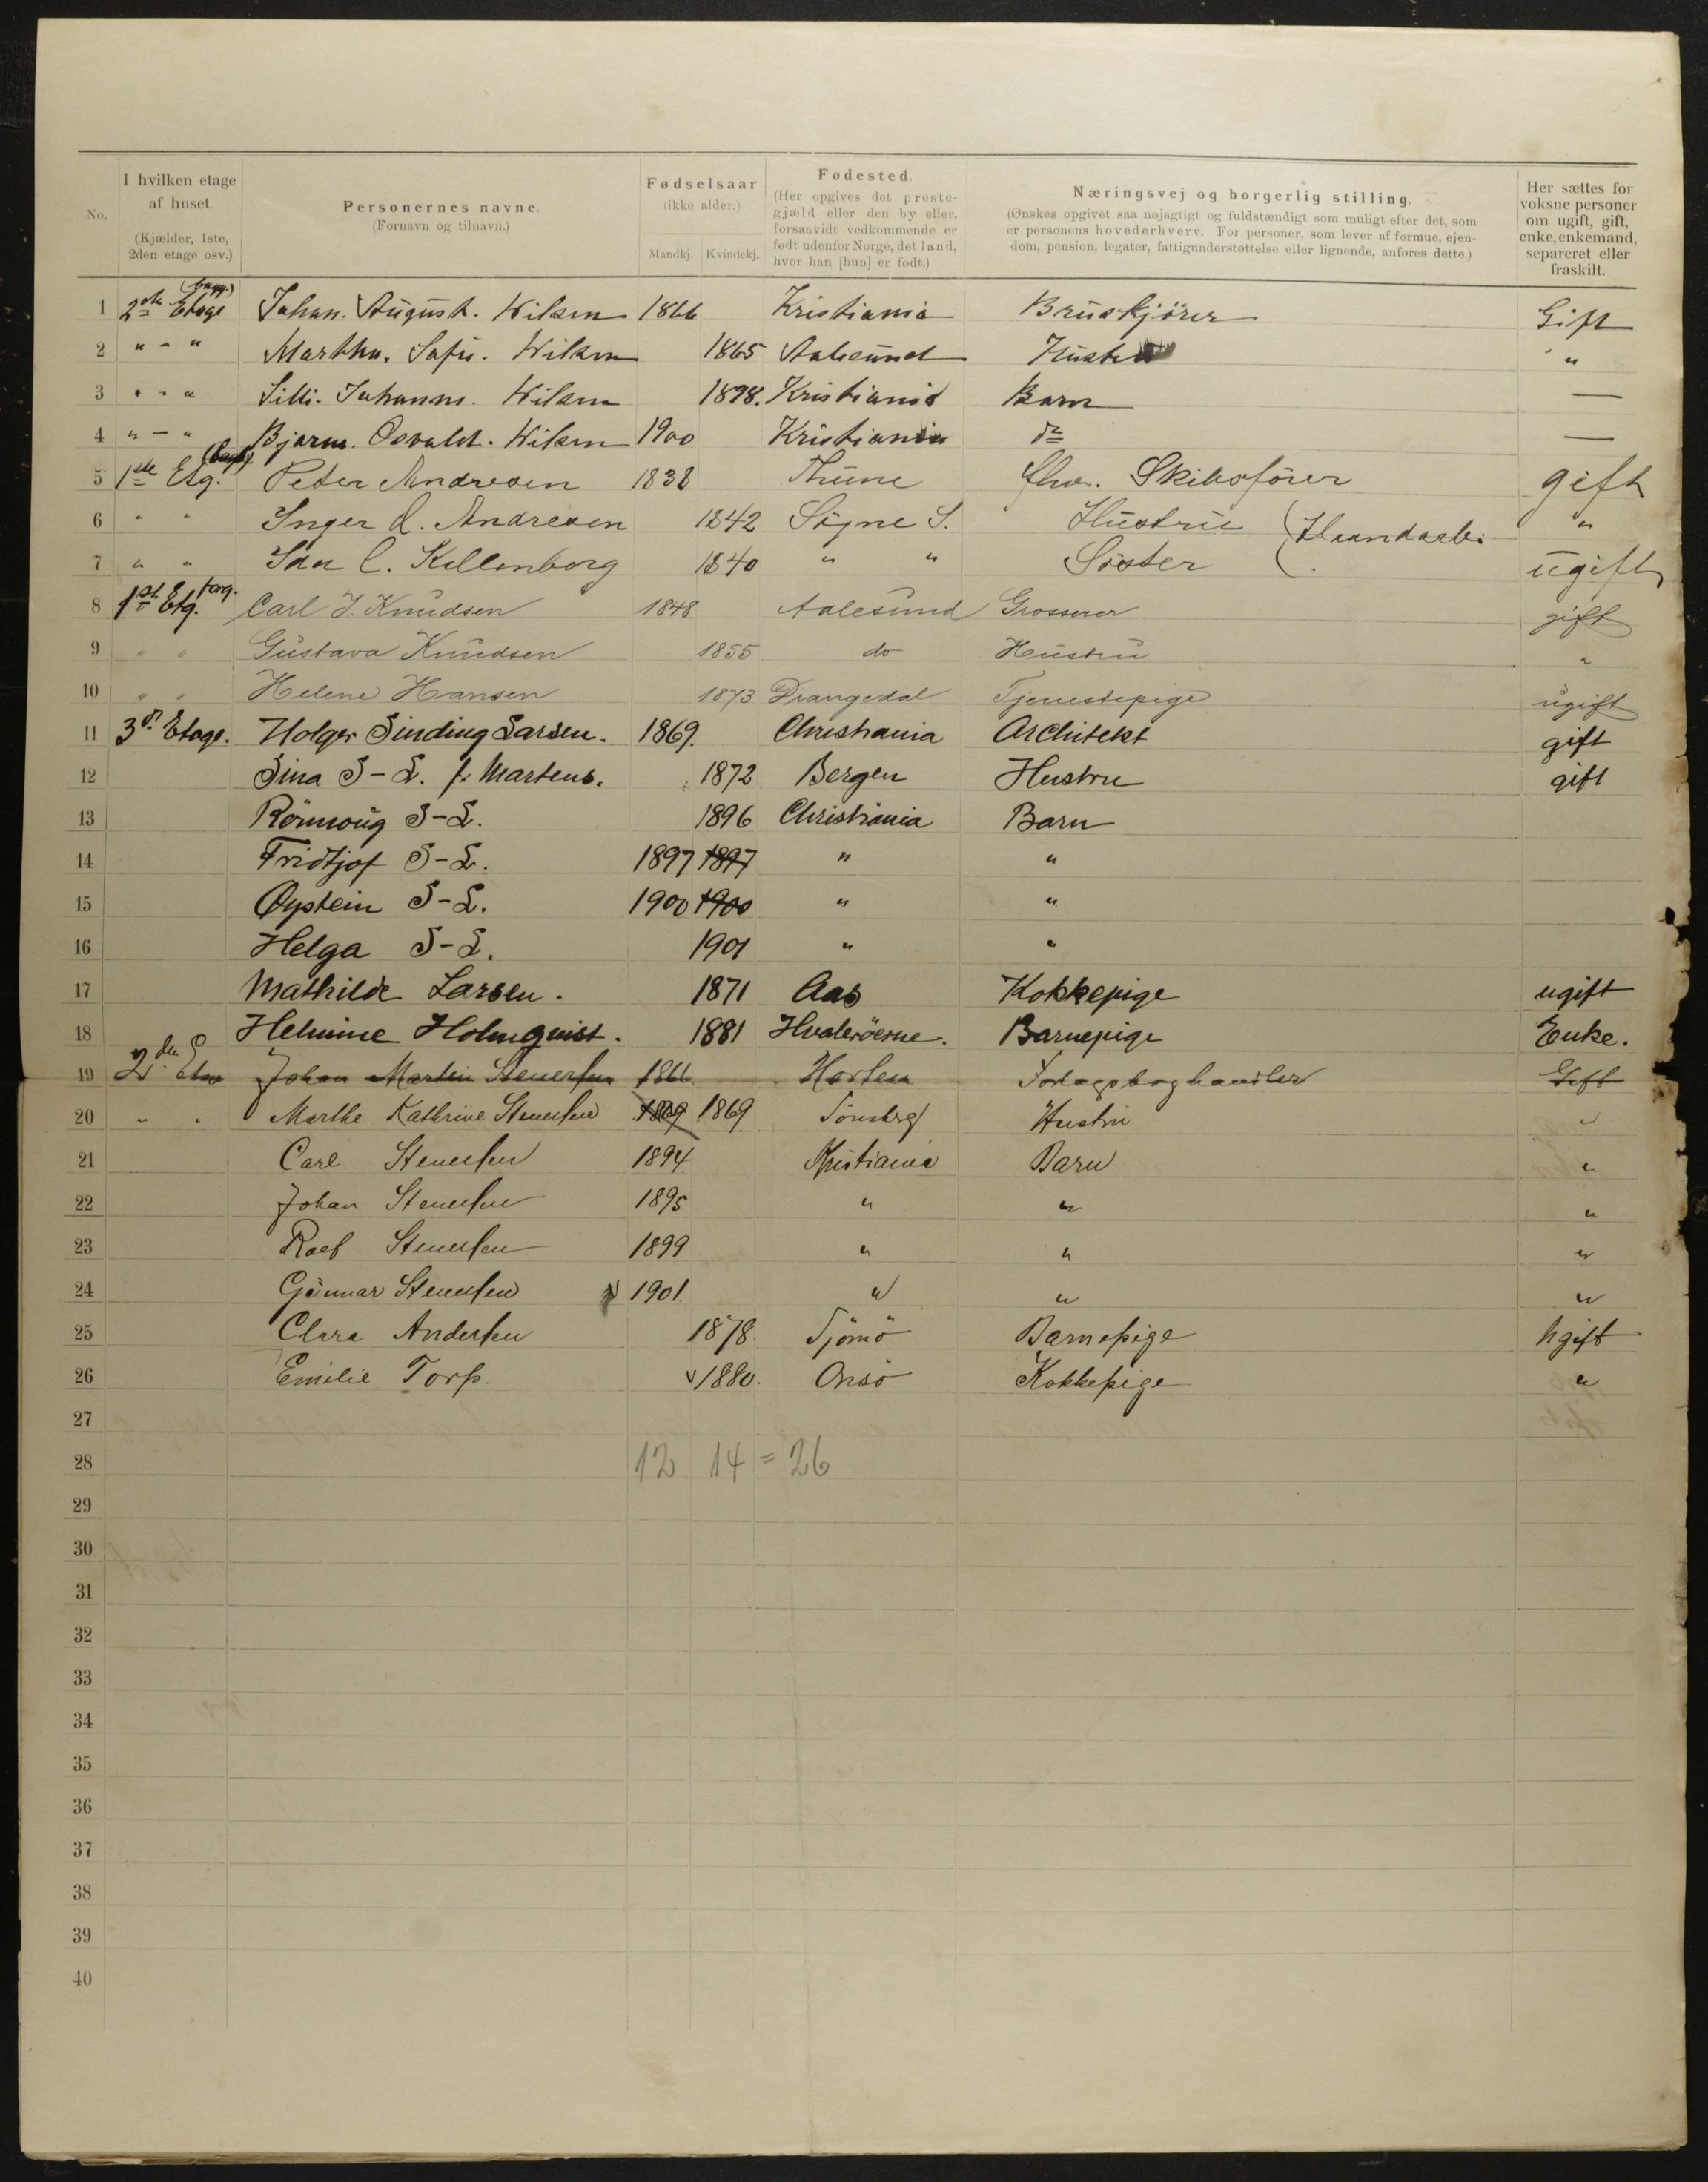 No.
I hvilken etage af huset.
(Kjælder, 1ste, 2den etage osv.)
Personernes navne.
(Fornavn og tilnavn.)
Fødselsaar
(ikke alder.)
Mandkj. Kvindekj.
Fødested.
(Her opgives det prestegjæld eller den by eller, forsaavidt vedkommende er født udenfor Norge, det land, hvor han [hun] er født.)
Næringsvej og borgerlig stilling.
(Ønskes opgivet saa nøjagtigt og fuldstændigt som muligt efter det, som er personens hovederhverv. For personer, som lever af formue, ejendom, pension, legater, fattigunderstøttelse eller lignende, anføres dette.)
Her sættes for voksne personer om ugift, gift, enke, enkemand, separeret eller fraskilt.
1 Etage Johan. August. Wilsen 1866 Kristiania Gift
2 " - " Wilsen 1865 Aalesund Hustru "
3 " - " Wilsen 1898. Kristiania Barn —
4 " - " Osvald. Wilsen 1900 Kristiania do —
5 1ste Etg. Peter Andresen 1838 Thune Skibsfører gift
6 " " Inger Andresen 1842 Søgne S. Hustru "
7 " " Kellenborg 1840 " " Søster ugift
8 1st Etg. Carl J. Knudsen 1848 Aalesund Grosserer gift
9 " " Gustava Knudsen 1855 do Hustru "
10 " " Helene Hansen 1873 Drangedal Tjenestepige ugift
11 3die Etage. Holger Sinding Larsen. 1869. Christiania Architekt gift
12 Sina S-L. f. Martens. 1872 Bergen Hustru gift
13 S-L. 1896 Christiania Barn
14 Fridtjof S-L. 1897 1897 " "
15 Øystein S-L. 1900 1900 " "
16 Helga S-L. 1901 " "
17 Mathilde Larsen. 1871 Aas Kokkepige ugift
18 Helmine Holmquist. 1881 Hvaløerne. Barnepige Enke.
19 2den Johan Martin Stenersen 1866 Horten Forlagsboghandler Gift
20 " . Marthe Kathrine Stenersen 1869 1869 Tønsberg Hustru "
21 Carl Stenersen 1894. Kristiania Barn "
22 Johan Stenersen 1895 " " "
23 Stenersen 1899 " " "
24 Gunnar Stenersen 1901. " " "
25 Clara Andersen 1878. Tjömö Barnepige Ugift
26 Emilie Torp. 1880. Onsö Kokkepige "
27
28 12 14 = 26
29
30
31
32
33
34
35
36
37
38
39
40